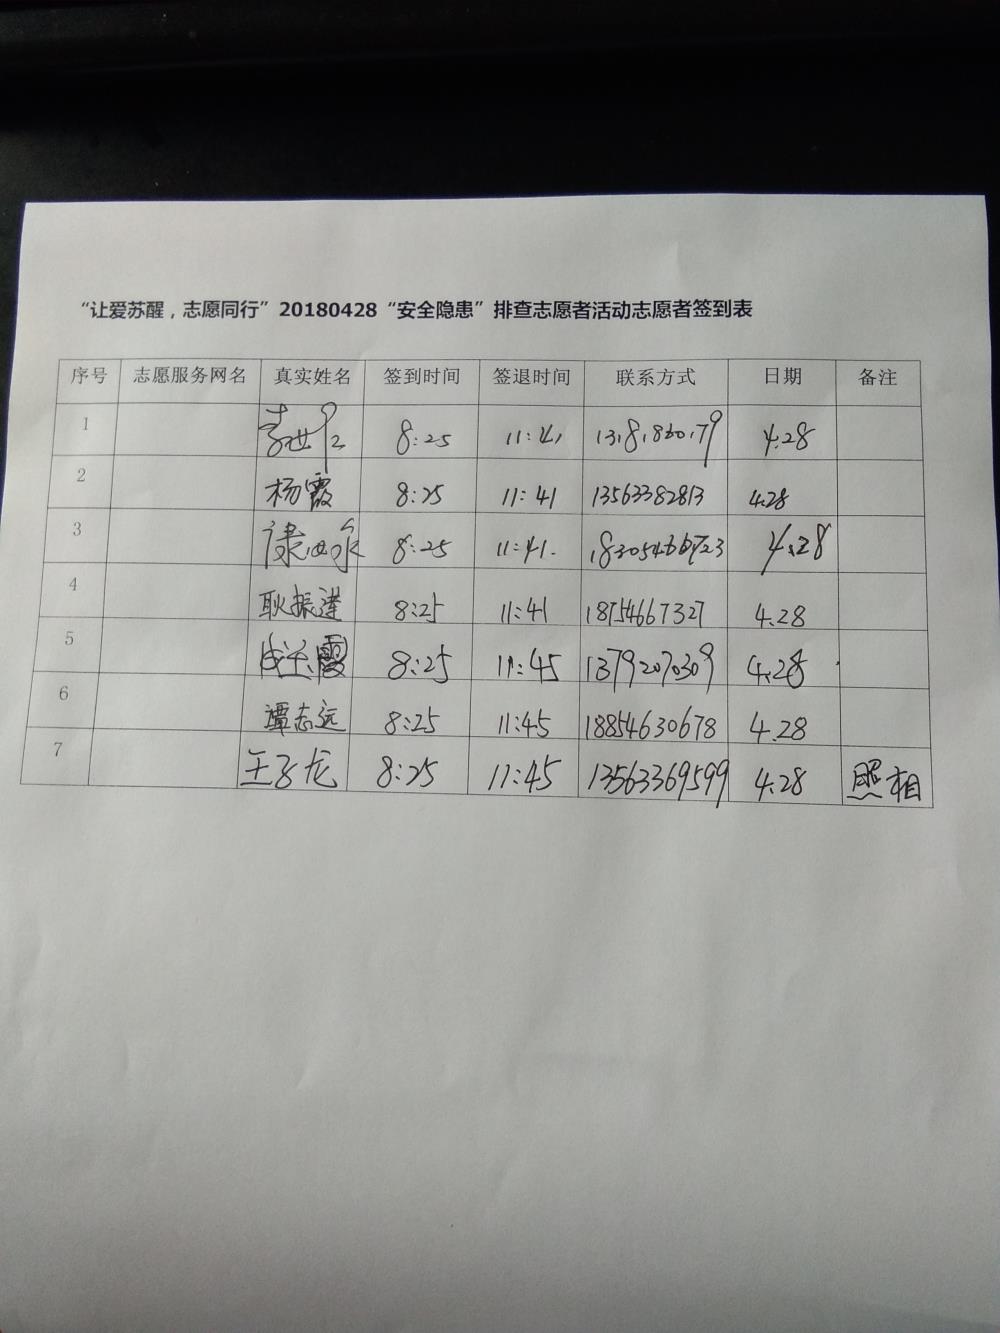 “让爱苏醒，志愿同行”20180428“安全隐患”排查志愿者活动志愿者签到表
序号 志愿服务网名 真实姓名 签到时间 签退时间 联系方式 日期 备注
1 8:25 11:41 4.28
2 杨霞 8:25 11:41 13563382813 4.28
3 8:25 11:41. 4.28
4 耿振进 8:25 11:41 18754667327 4.28
5 8:25 11:45 13792070309 4.28
6 谭志远 8:25 11:45 18854630678 4.28
7 王飞龙 8:25 11:45 13563369599 4.28 照相